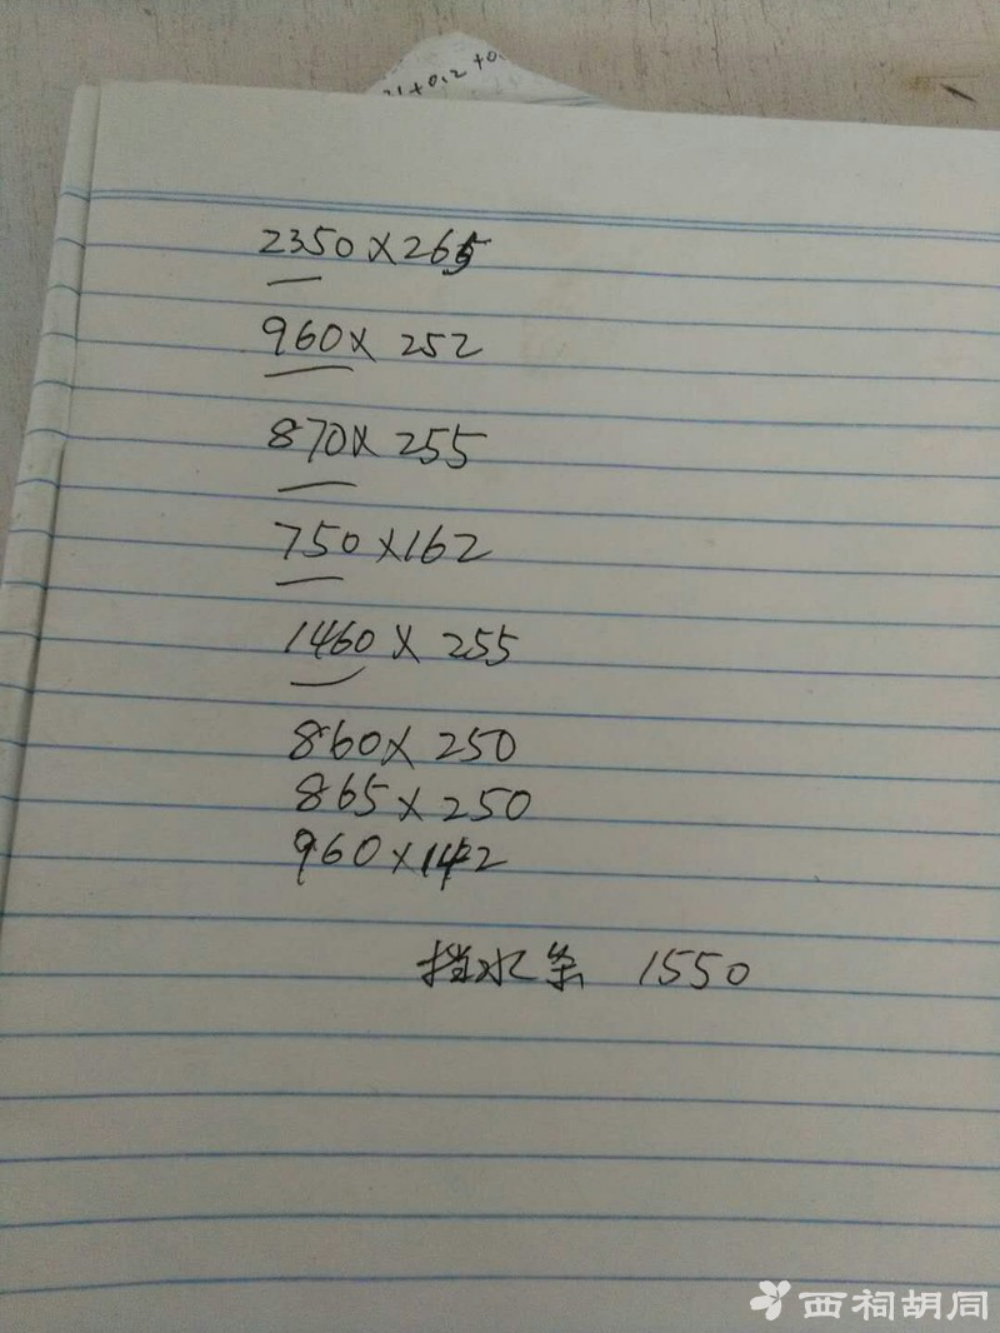 +0.2+0.
2350×265
960×252
870×255
750×162
1460×255
860×250
865×250
960×142
挡水条 1550
西祠胡同